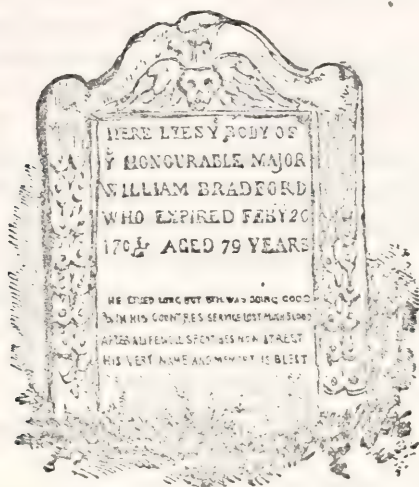 HERE LYES Yᵉ BODY OF
Yᵉ HONOURABLE MAJOR
WILLIAM BRADFORD
WHO EXPIRED FEBY 20
170¾ AGED 79 YEARS
HE LIVED LONG BUT STILL WAS DOING GOOD
& IN HIS COUNTRES SERVICE LOST MUCH BLOOD
AFTER A LIFE WELL SPENT HES NOW AT REST
HIS VERY NAME AND MEMORY IS BLEST